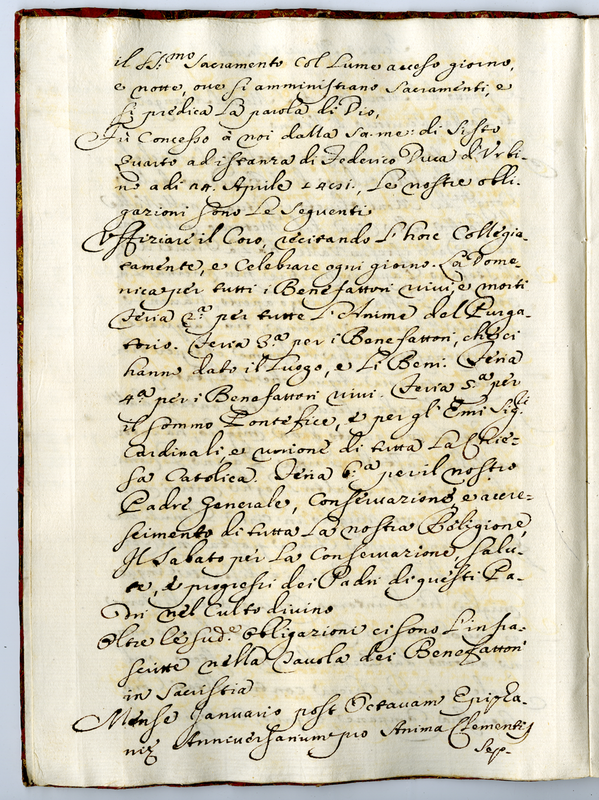 il SS.mo Sacramento col lume acceso giorno,
e notte, ove si amministrano Sacramenti, e
si predica la parola di Dio,
Fù Concesso à noi dalla sa: me: di Sisto
Quarto ad istanza di Federico Duca d'Urbi-
no adi 14. Aprile 1481., Le nostre obli-
gazioni sono le seguenti
Uffiziare il Coro, recitando l'hore Collegia-
tamente, e Celebrare ogni giorno. La Dome-
nica per tutti i Benefattori vivi, e morti
Feria 2.a per tutte l'Anime del Purga-
torio. Feria 3.a per i Benefattori, che ci
hanno dato il luogo, e li Beni. Feria
4.a per i Benefattori vivi. Feria 5.a per
il sommo Pontefice, e per gl'Emi Sig.ri
Cardinali, e unione di tutta la Chie-
sa Catolica. Feria 6.a per il nostro
Padre Generale, Conservazione, e accre-
scimento di tutta la nostra Religione,
Il Sabato per la Conservazione, salu-
te, e progressi dei Padri di questi Pa-
dri nel Culto divino
Oltre le sud.e obligazioni ci sono l'infra-
scritte nella Tavola dei Benefattori
in Sacristia
Mense Januario post Octavam Epipha-
niæ Anniversarium pro Anima Clementis
Sep-